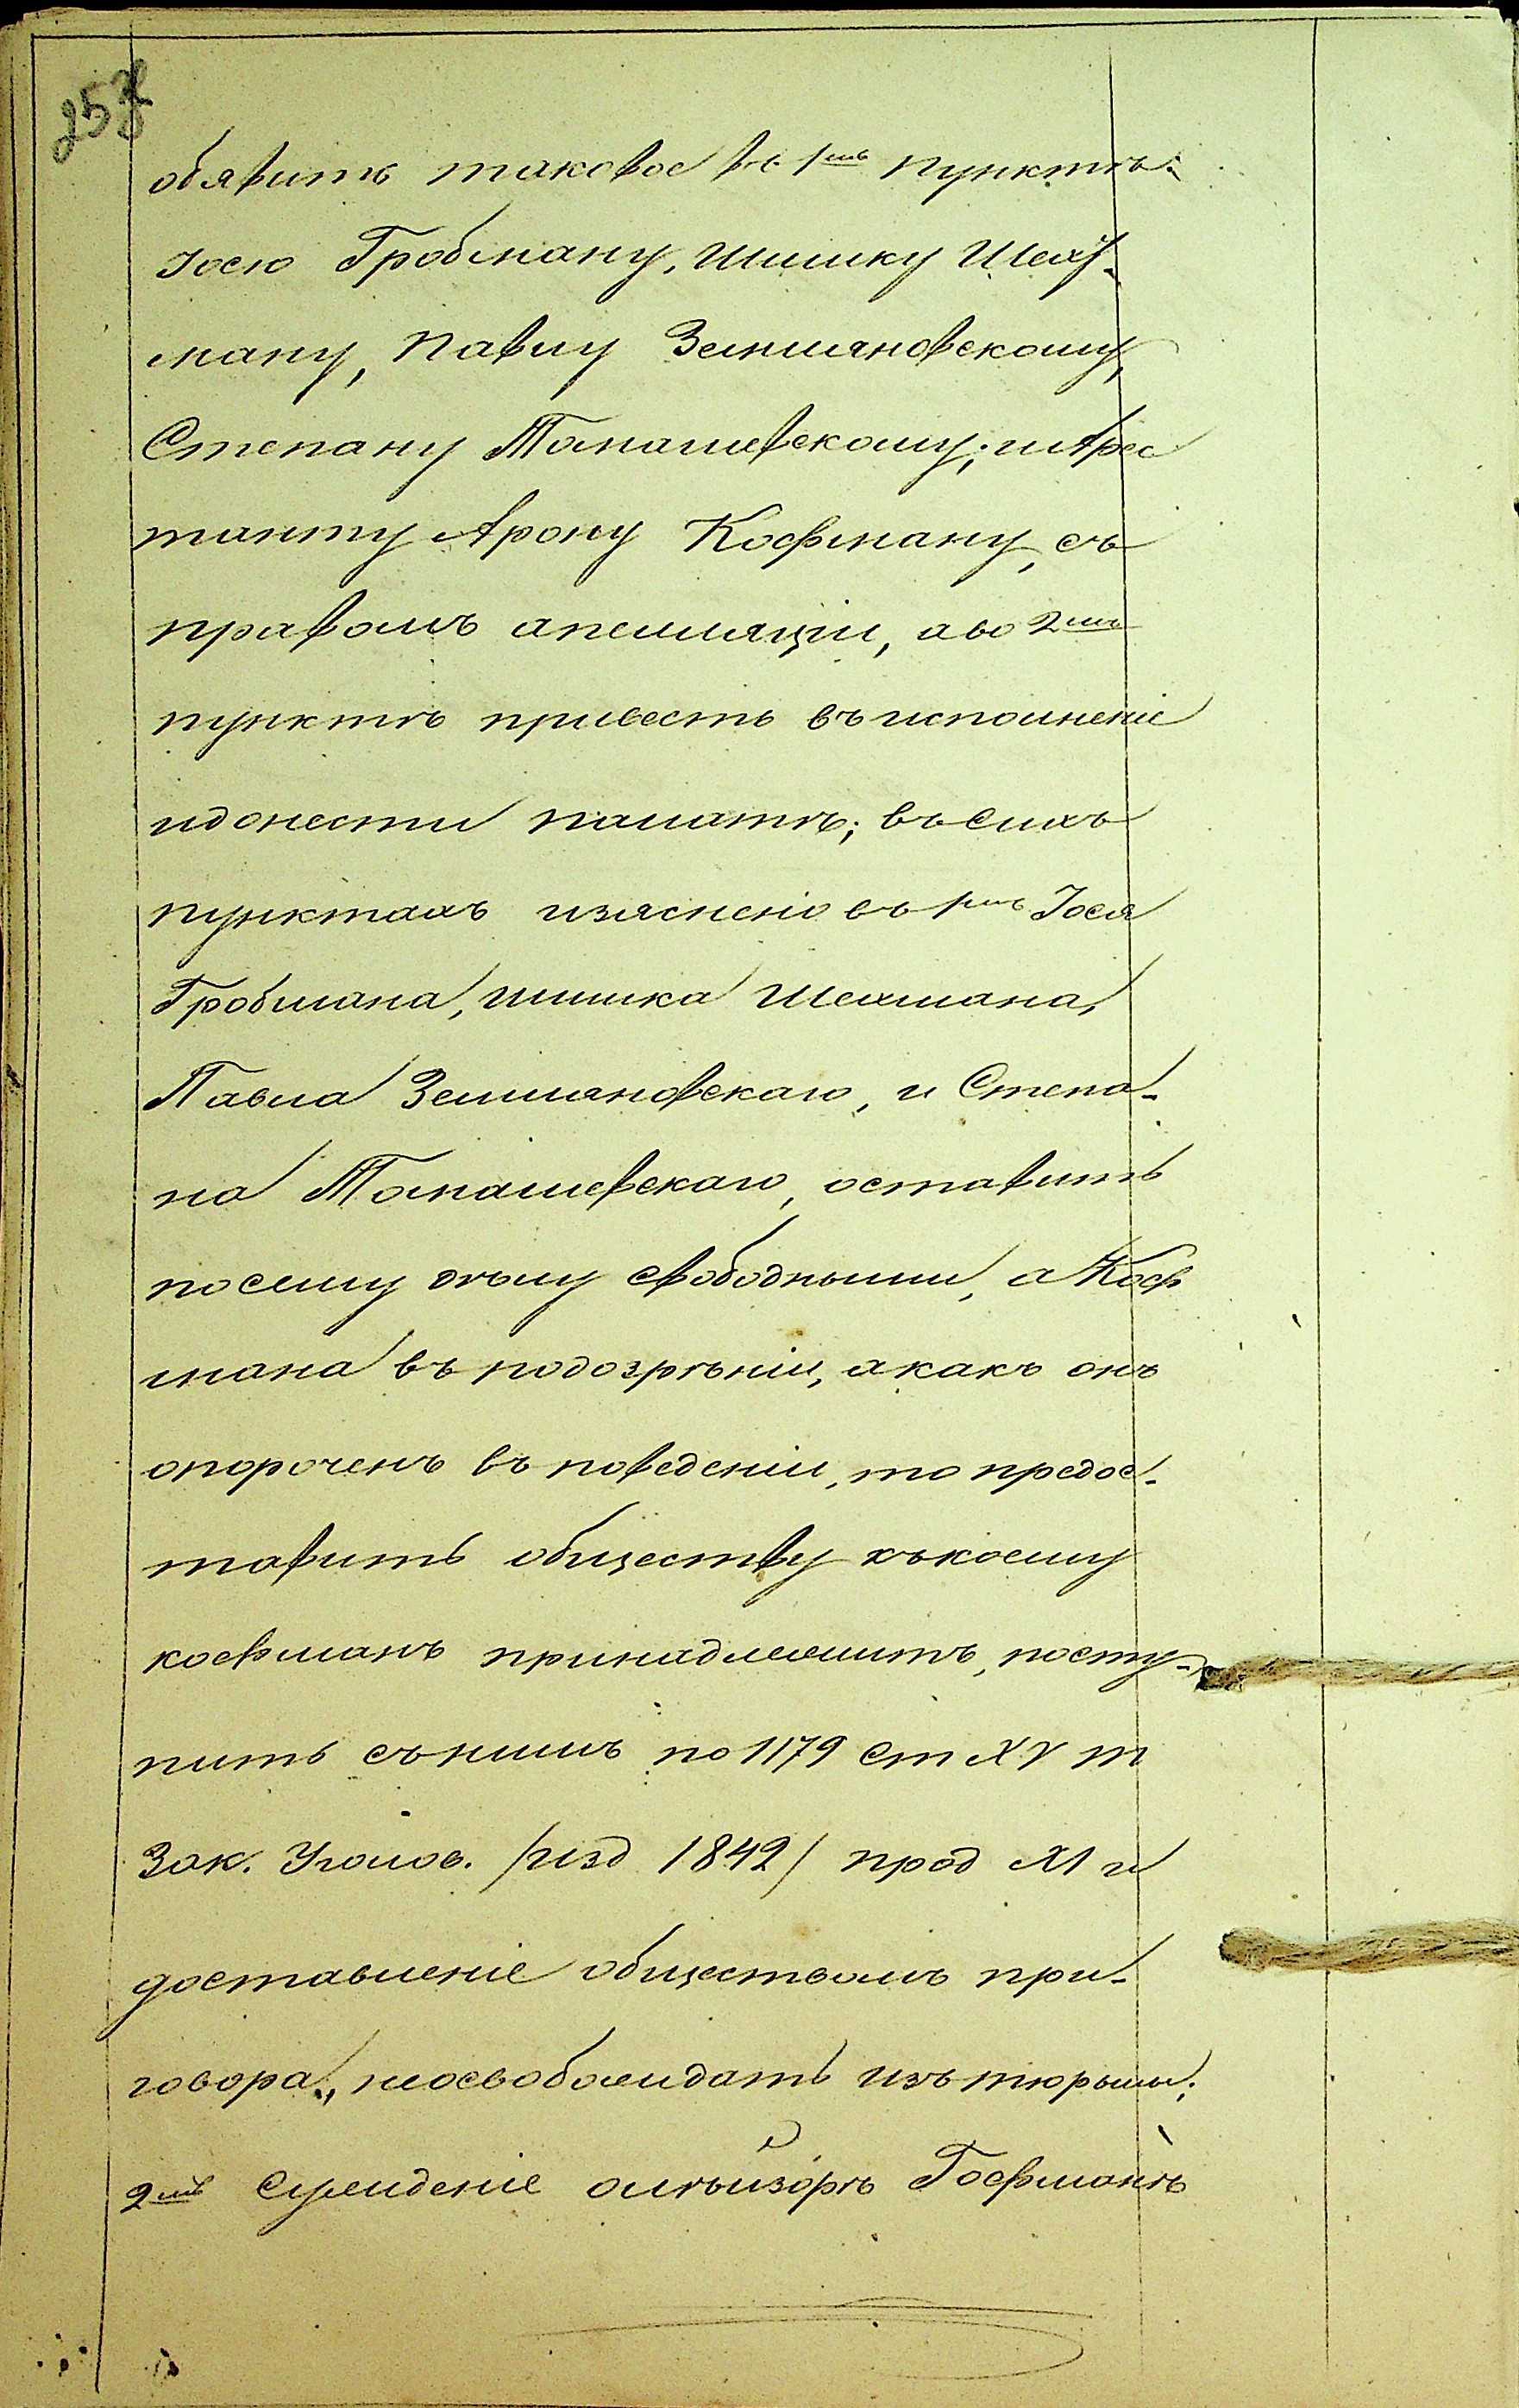 257
обявить таковое въ 1мъ пунктѣ:
Іосю Гробману, Шимку Шех-
ману, Павлу Земляновскому,
Степану Томашевскому; и Арес
танту Арону Кофману, съ
правомъ апелляціи, а во 2мъ
пунктѣ привесть въ исполненіе
и донести палатѣ; въ сихъ
пунктахъ изяснено въ 1мъ Іося
Гробмана, Шимка Шехмана,
Павла Земляновскаго, и Степа-
на Томашевскаго, оставить
по сему дѣлу свободными, а Коф
мана въ подозрѣніи, а какъ онъ
опороченъ въ поведеніи, то предос-
тавить обществу къ коему
кофманъ принадлежитъ, посту-
пить съ нимъ по 1179 ст XV т
Зак. Уголов. /изд 1842/ прод XI и
доставленіе обществомъ при-
говора, неосвобождать изъ тюрьмы;
2мъ Сужденіе о Гофманѣ